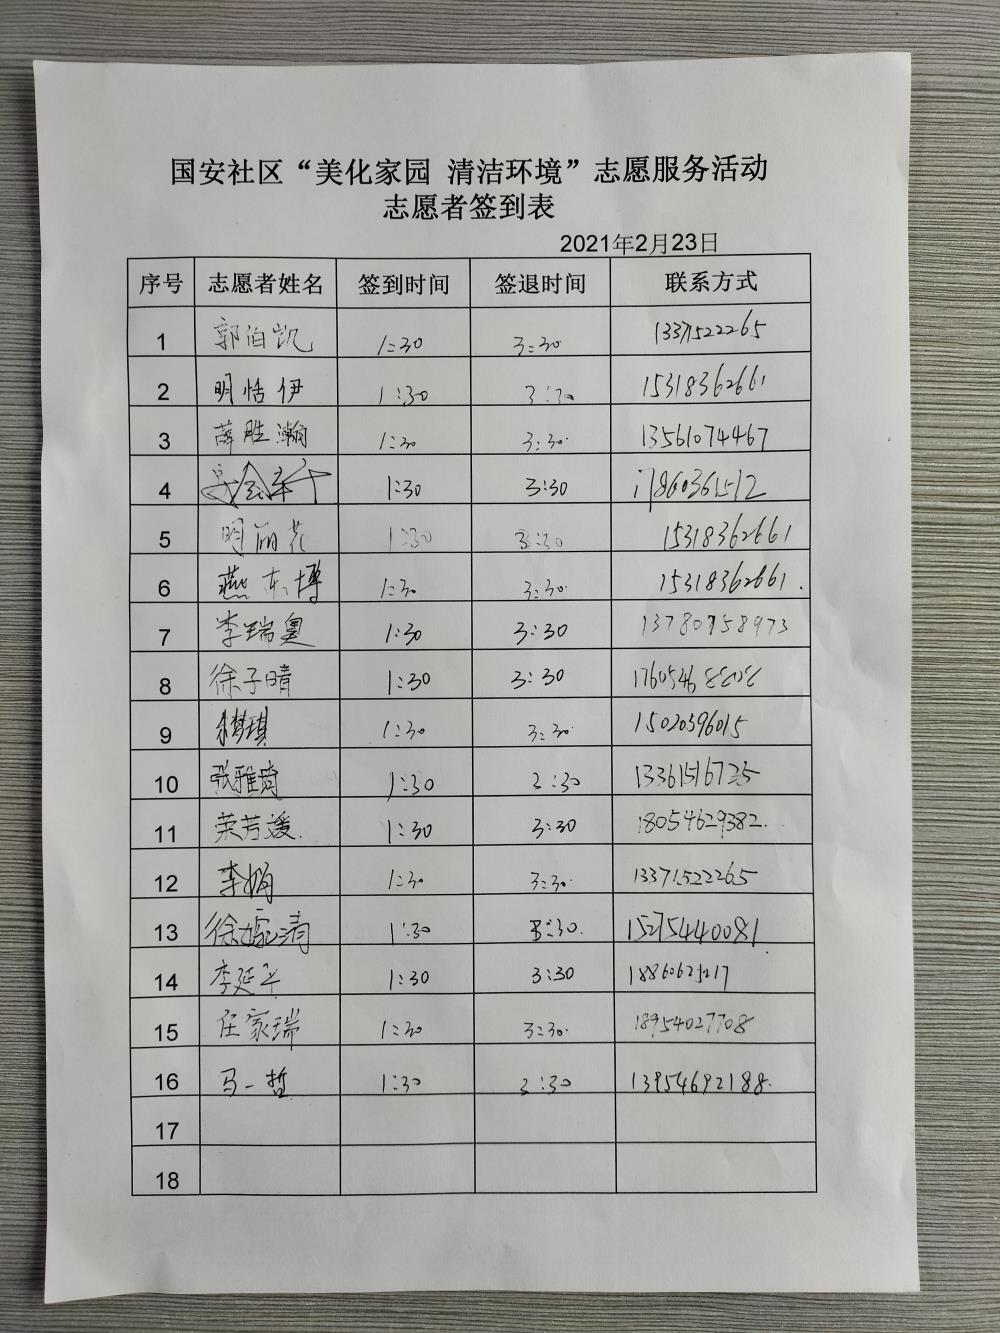 国安社区“美化家园 清洁环境”志愿服务活动
志愿者签到表
2021年2月23日
序号 志愿者姓名 签到时间 签退时间 联系方式
1 郭伯凯 1:30 3:30 13371522265
2 明恬伊 1:30 3:30 15318362661
3 薛胜瀚 1:30 3:30 13561074467
4 1:30 3:30
5 明丽花 1:30 3:30 15318362661
6 燕东博 1:30 3:30 15318362661.
7 李瑞奥 1:30 3:30 13780758973
8 徐子晴 1:30 3:30
9 朱梦琪 1:30 3:30 15020396015
10 张雅琦 1:30 3:30 13361516725
11 荣芳媛. 1:30 3:30 18054629382.
12 李娟 1:30 3:30 13371522265
13 1:30 3:30. 15275440081
14 李延平 1:30 3:30
15 任家瑞 1:30 3:30 18954027708
16 马一哲 1:30 3:30 13954692188.
17
18